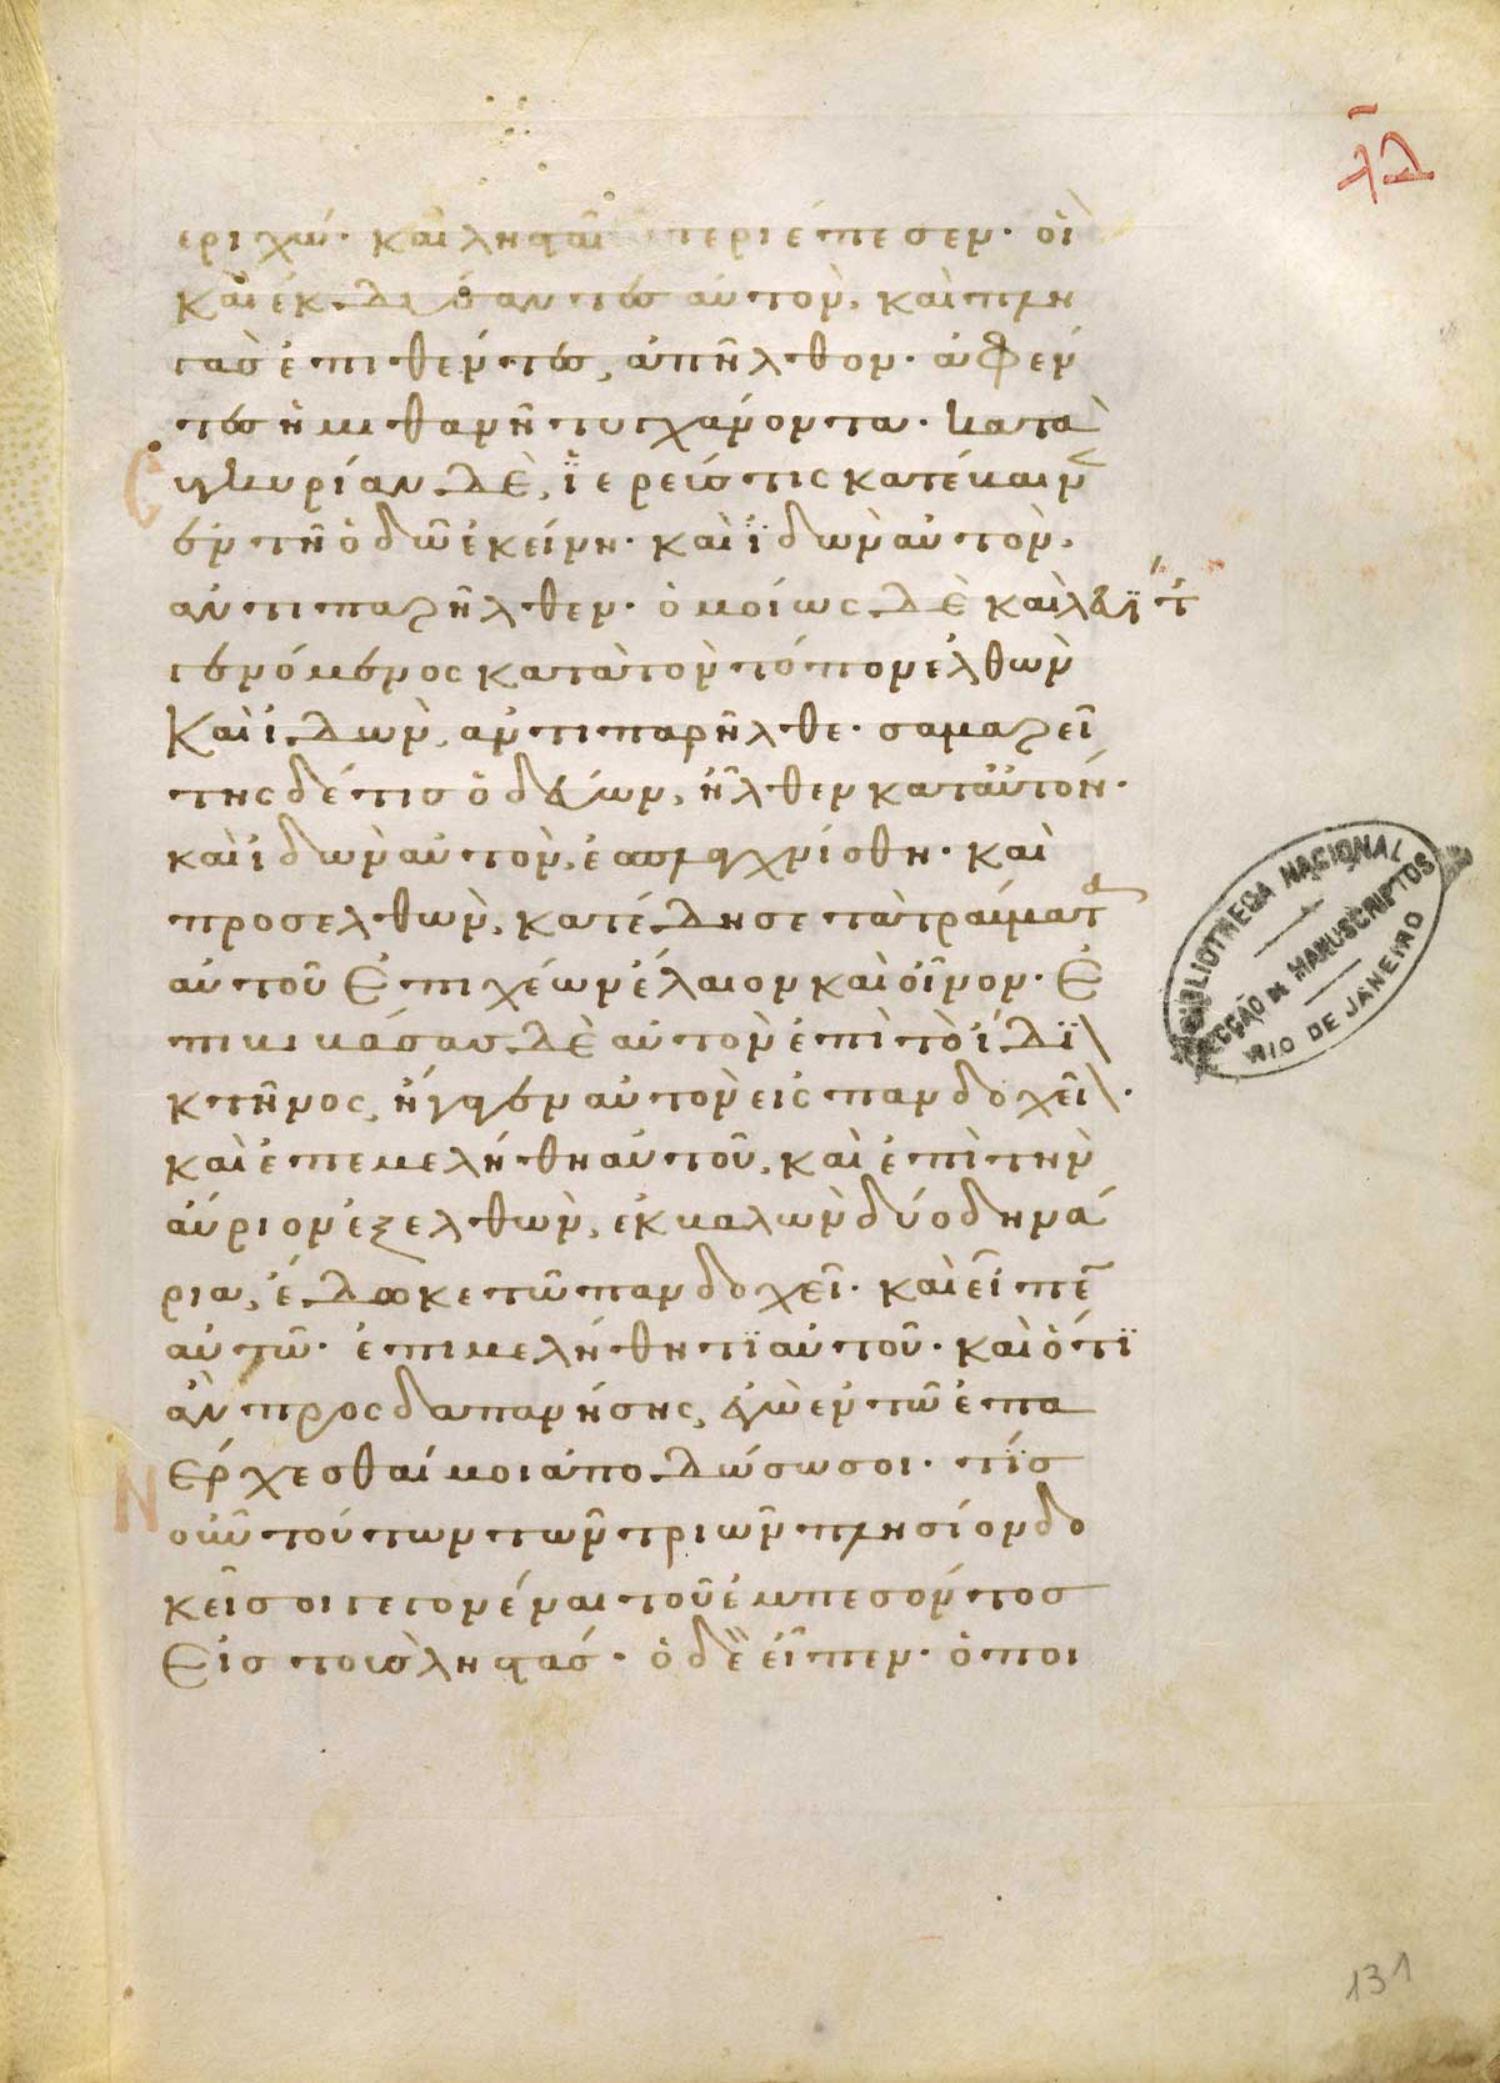 λα
εριχώ· καὶ λησταῖ περιέπεσεν· οἳ
καὶ ἐκδύσαντες αὐτὸν, καὶ πλη
γὰσ ἐπιθέντες, ἀπῆλθον· ἀφέν
τες ἡμιθανῆ τυγχάνοντα· κατὰ
συγκυρίαν δὲ, ἱερεύς τις κατέβαιν
ἐν τῇ ὁδῷ ἐκείνῃ· καὶ ἰδὼν αὐτὸν,
ἀντιπαρῆλθεν· ὁμοίως δὲ καὶ λευΐτ
γενόμενος κατὰ τὸν τόπον ἐλθὼν
Καὶ ἰδὼν, ἀντιπαρῆλθε· σαμαρεί
της δέ τισ ὁδεύων, ἦλθεν κατ αὐτόν·
καὶ ἰδὼν αὐτὸν, ἐσπλαγχνίσθη· καὶ
προσελθὼν, κατέδησε τὰ τραύματα
αὐτοῦ ἐπιχέων ἔλαιον καὶ οἶνον· ἐ
πιβιβάσας δὲ αὐτὸν ἐπὶ τὸ ἴδϊ\
κτῆνος, ἤγαγεν αὐτὸν εἰς πανδοχεῖ\·
καὶ ἐπεμελήθη αὐτοῦ, καὶ ἐπὶ τὴν
αὔριον ἐξελθὼν, ἐκβαλὼν δύο δηνά
ρια, ἔδωκε τῷ πανδοχεῖ· καὶ εἶπε
αὐτῷ· ἐπιμελήθητϊ αὐτοῦ· καὶ ὅτϊ
ἂν προσδαπανήσης, ἐγὼ ἐν τῷ ἐπα
νέρχεσθαί μοι ἀποδώσω σοι· τίσ
οὖν τούτων τῶν τριῶν πλησίον δο
κεῖ σοι γεγονέναι τοῦ ἐμπεσόντοσ
Εἰσ τοὺσ ληστάσ· ὁ δὲ εἶπεν· ὁ ποι
BIBLIOTHECA NACIONAL
SECÇÃO DE MANUSCRIPTOS
RIO DE JANEIRO
131